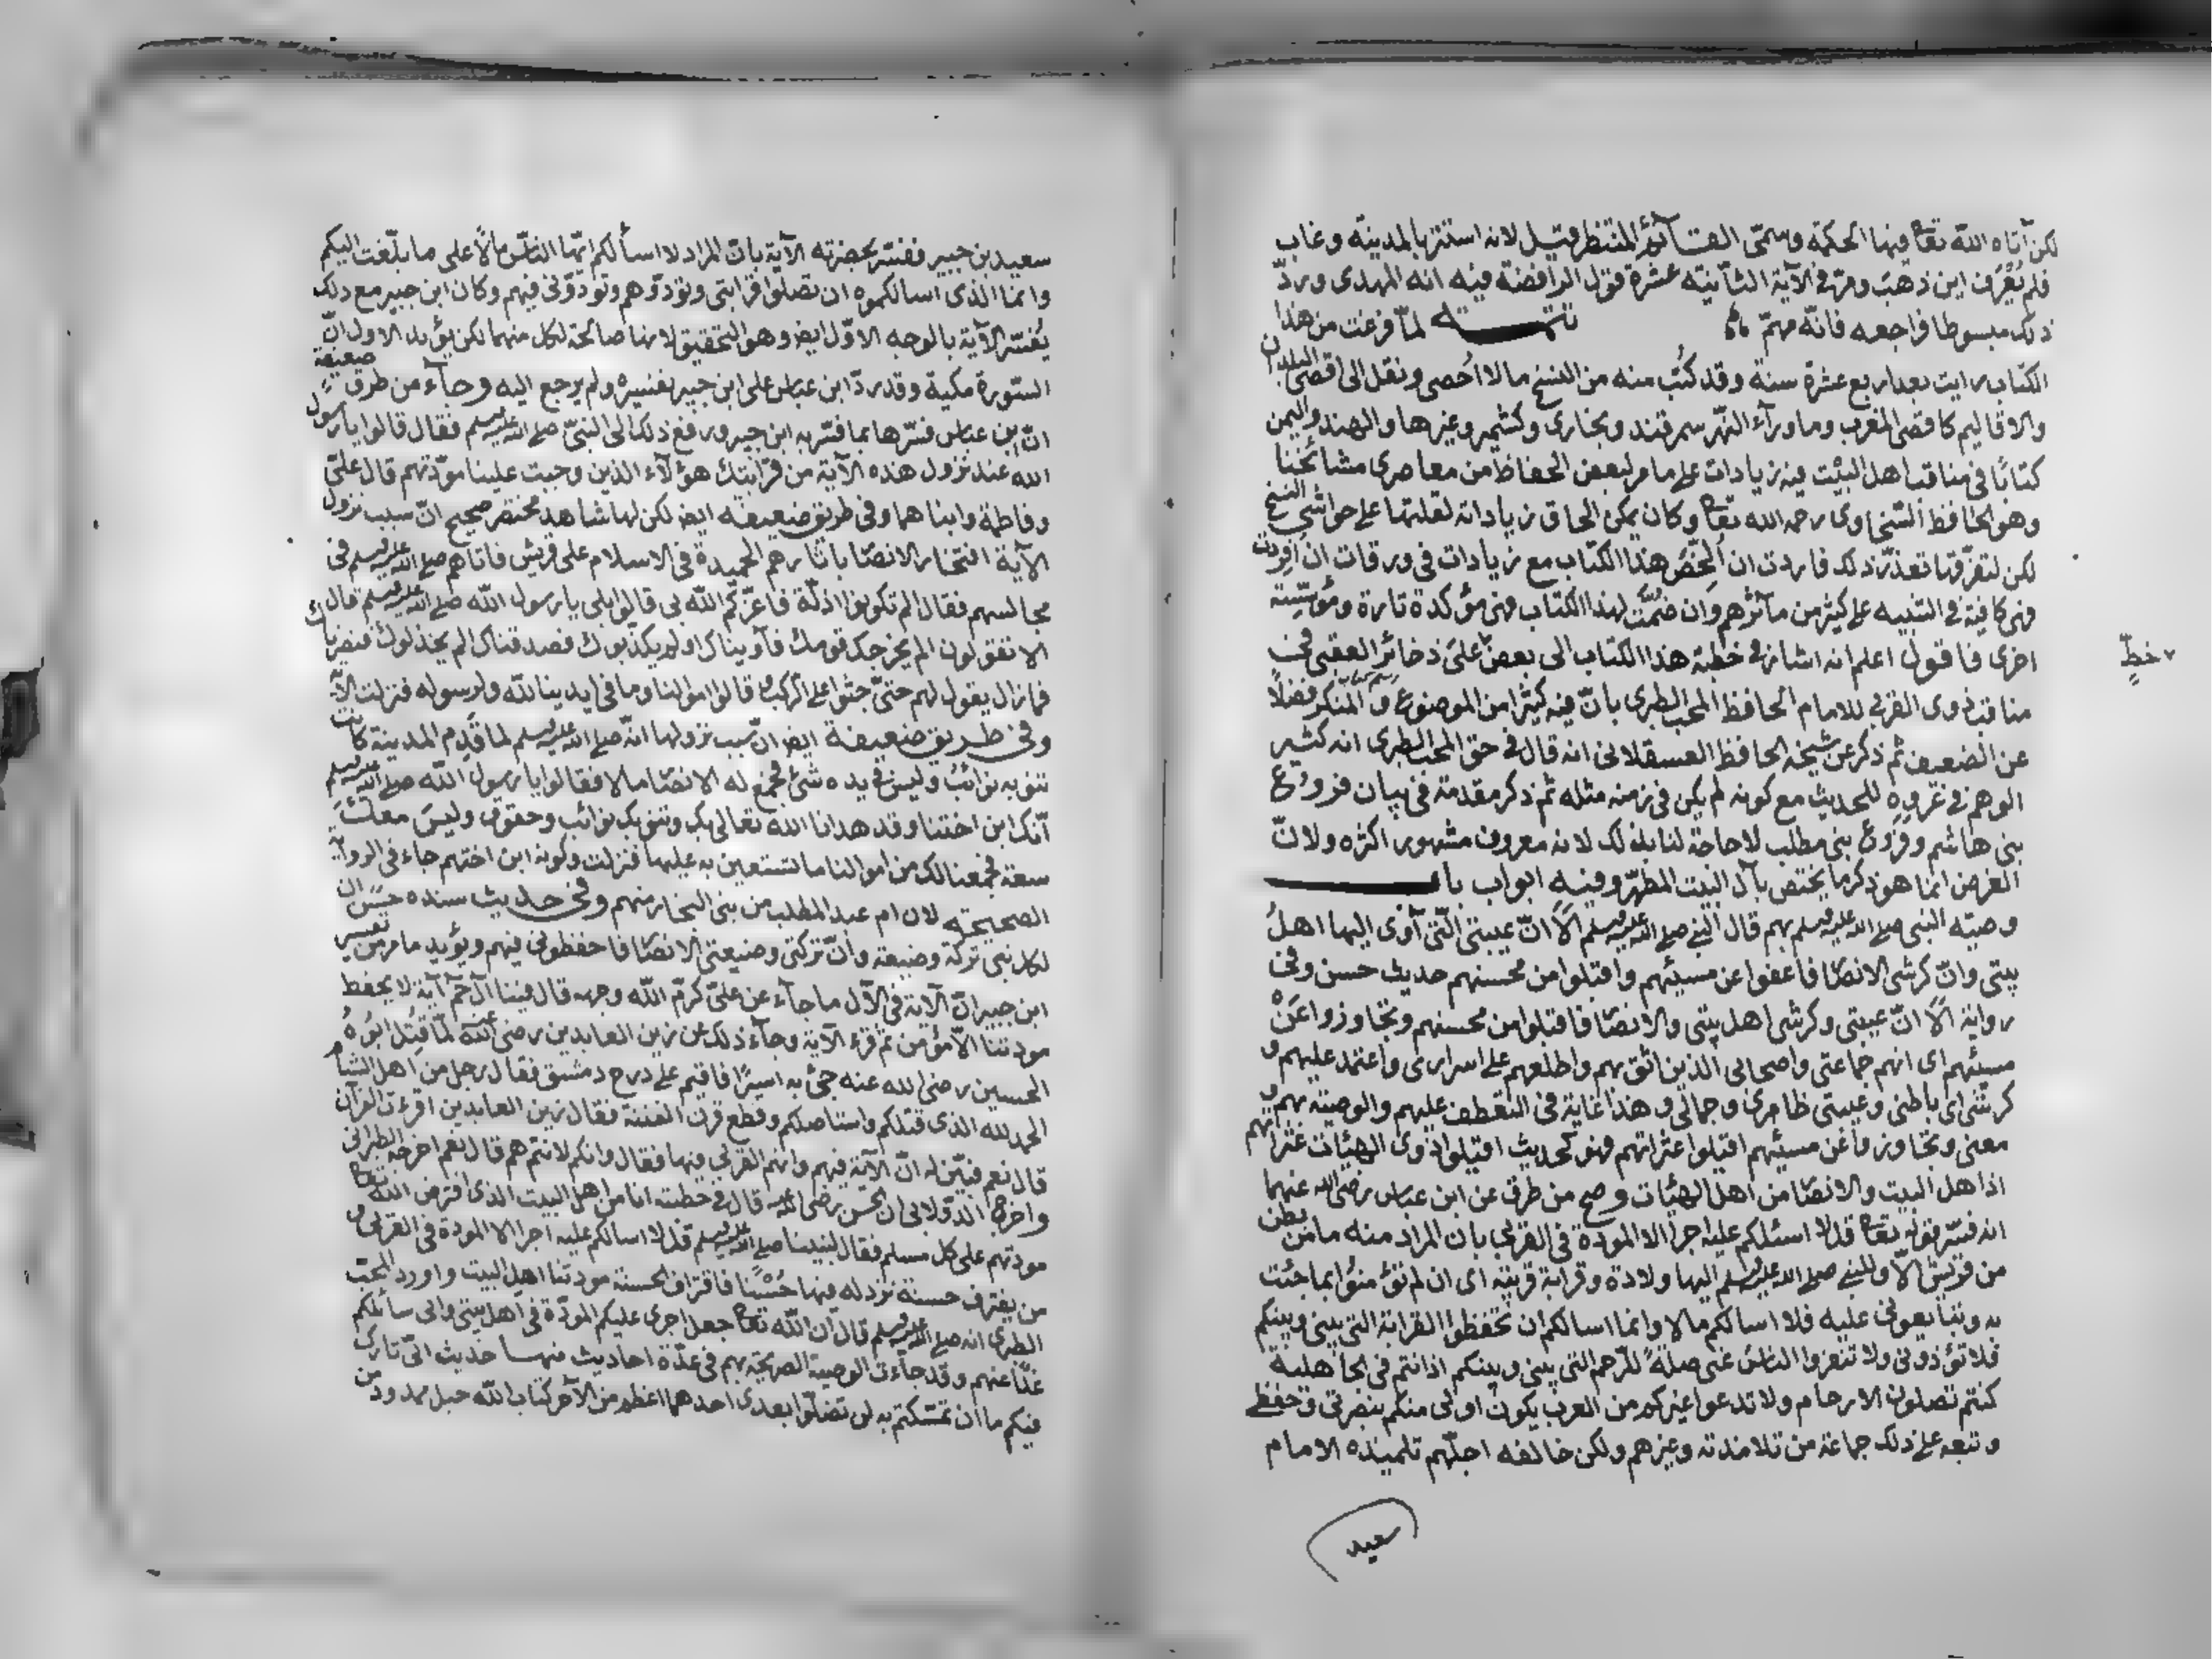 لكن آتاه الله تعا فيها الحكمة وسمى القائم المنتظر قيل لانه استتر بالمدينة وغاب
فلم يعرف اين ذهب ومر في الآية الثانية عشرة قول الرافضة فيه انه المهدى ورد
ذلك مبسوطا فراجعه فانه مهم تتمه لما فرغت من هذا
الكتاب رايت بعد اربع عشرة سنة وقد كتب منه من النسخ ما لا احصى ونقل الى اقصى البلدان
والاقاليم كاقصى المغرب وما ورآء النهر سمرقند وبخارى وكشمير وغيرها والهند واليمن
كتابا في مناقب اهل البيت فيه زيادات على ما مر لبعض الحفاظ من معاصرى مشائخنا
وهو الحافظ السخاوى رحمه الله تعا وكان يمكن الحاق زياداته لقلتها على حواشى النسخ
لكن لتفرقها تعذر ذلك فاردت ان الخص هذا الكتاب مع زيادات في ورقات ان افردت
فهى كافية في التنبيه على كثير من مآثرهم وان ضمت لهذا الكتاب فهى مؤكدة تارة ومؤسسة
اخرى فاقول اعلم انه اشار في خطبة هذا الكتاب الى بعض على ذخائر العقبى في
مناقب ذوى القربى للامام الحافظ المحب الطبرى بان فيه كثيرا من الموضوع والمنكر فضلا
عن الضعيف ثم ذكر عن شيخه الحافظ العسقلانى انه قال في حق المحب الطبرى انه كثير
الوهم في عزوه للحديث مع كونه لم يكن في زمنه مثله ثم ذكر مقدمة في بيان فروع
بنى هاشم وفروع بنى مطلب لا حاجة لنا بذلك لانه معروف مشهور اكثره ولان
الغرض انما هو ذكر ما يختص بآل البيت المطهر وفيه ابواب باب
وصية النبى صلى الله عليه وسلم بهم قال النبى صلى الله عليه وسلم الا ان عيبتى التى آوى اليها اهل
بيتى وان كرشى الانصا فاعفوا عن مسيئهم واقبلوا من محسنهم حديث حسن وفى
رواية الا ان عيبتى وكرشى اهل بيتى والانصا فاقبلوا من محسنهم وتجاوزوا عن
مسيئهم اى انهم جماعتى واصحابى الذين اثق بهم واطلعهم على اسرارى واعتمد عليهم و
كرشى اى باطنى وعيبتى ظاهرى وجمالى وهذا غاية فى التعطف عليهم والوصية بهم و
معنى وتجاوزوا عن مسيئهم اقيلوا عثراتهم فهو كحديث اقيلوا ذوى الهيئات عثراتهم
اذ اهل البيت والانصا من اهل الهيئات وصح من طرق عن ابن عباس رضى الله عنهما
انه فسر قوله تعا قل لا اسئلكم عليه اجرا الا المودة فى القربى بان المراد منه ما من بطن
من قريش الا وللنبى صلى الله عليه وسلم اليها ولادة وقرابة قريبة اى ان لم تؤمنوا بما جئت
به وتبايعونى عليه فلا اسالكم مالا وانما اسالكم ان تحفظوا القرابة التى بينى وبينكم
فلا تؤذونى ولا تنفروا الناس عنى صلة للرحم التى بينى وبينكم اذ انتم فى الجاهلية
كنتم تصلون الارحام ولا تدعوا غيركم من العرب يكون اولى منكم بنصرتى وحفظى
وتبعه على ذلك جماعة من تلامذته وغيرهم ولكن خالفه اجلهم تلميذه الامام
سعيد
سعيد بن جبير ففسر بحضرته الآية بان المراد لا اسألكم ايها الناس مالا على ما بلغت اليكم
وانما الذى اسالكموه ان تصلوا قرابتى وتودوهم وتودونى فيهم وكان ابن جبير مع ذلك
يفسر الآية بالوجه الاول ايض وهو التحقيق لانها صالحة لكل منهما لكن يؤيد الاول ان
السورة مكية وقد رد ابن عباس على ابن جبير تفسيره ولم يرجع اليه وجآء من طرق ضعيفة
ان ابن عباس فسرها بما فسر به ابن جبير ورفع ذلك الى النبى صلى الله عليه وسلم فقال قالوا يا رسول
الله عند نزول هذه الآية من قرابتك هؤلآء الذين وجبت علينا مودتهم قال على
وفاطمة وابناهما وفى طريق ضعيفه ايض لكن لها شاهد مختصر صحيح ان سبب نزول
الآية افتخار الانصا باثارهم الحميدة فى الاسلام على قريش فاتاهم صلى الله عليه وسلم فى
مجالسهم فقال الم تكونوا اذلة فاعزكم الله بى قالوا بلى يا رسول الله صلى الله عليه وسلم قال
الا تقولون الم يخرجك قومك فآويناك اولم يكذبوك فصدقناك الم يخذلوك فنصرناك
فما زال يقول لهم حتى جثوا على الركب قالوا اموالنا وما فى ايدينا لله ولرسوله فنزلت الآية
وفى طريق ضعيفة ايض ان سبب نزولها انه صلى الله عليه وسلم لما قدم المدينة كانت
تنوبه نوائب وليس فى يده شئ فجمع له الانصا مالا فقالوا يا رسول الله صلى الله عليه وسلم
انك ابن اختنا وقد هدانا الله تعالى بك وتنوبك نوائب وحقوق وليس معك
سعة فجمعنا لك من اموالنا ما تستعين به عليها فنزلت وكونه ابن اختهم جاء فى الرواية
الصحيحة لان ام عبد المطلب من بنى النجار منهم وفى حديث سنده حسن ان
لكل نبى تركة وضيعة وان تركتى وضيعتى الانصا فاحفظونى فيهم ويؤيد ما مر من تفسير
ابن جبير ان الآية فى الآل ما جآء عن على كرم الله وجهه قال فينا آل حم آية لا يحفظ
مودتنا الا مؤمن ثم قرء الآية وجآء ذلك عن زين العابدين رضى الله عنه لما قتل ابوه
الحسين رضى الله عنه جئ به اسيرا فاقيم على درج دمشق فقال رجل من اهل الشام
الحمد لله الذى قتلكم واستاصلكم وقطع قرن الفتنة فقال زين العابدين اقرءت القرآن
قال نعم فبين له ان الآية فيهم وانهم القربى فيها فقال وانكم لانتم هم قال نعم اخرجه الطبرانى
واخرج الدولابى ان الحسن رضى الله عنه قال فى خطبته انا من اهل البيت الذى افترض الله تعا
مودتهم على كل مسلم فقال لنبينا صلى الله عليه وسلم قل لا اسالكم عليه اجرا الا المودة فى القربى و
من يقترف حسنة نزد له فيها حسنا فاقتراف الحسنة مودتنا اهل البيت واورد المحب
الطبرى انه صلى الله عليه وسلم قال ان الله تعا جعل اجرى عليكم المودة فى اهل بيتى وانى سائلكم
غدا عنهم وقد جاءت الوصية الصريحة بهم فى عدة احاديث منها حديث انى تارك
فيكم ما ان تمسكتم به لن تضلوا بعدى احدهما اعظم من الآخر كتاب الله حبل ممدود من